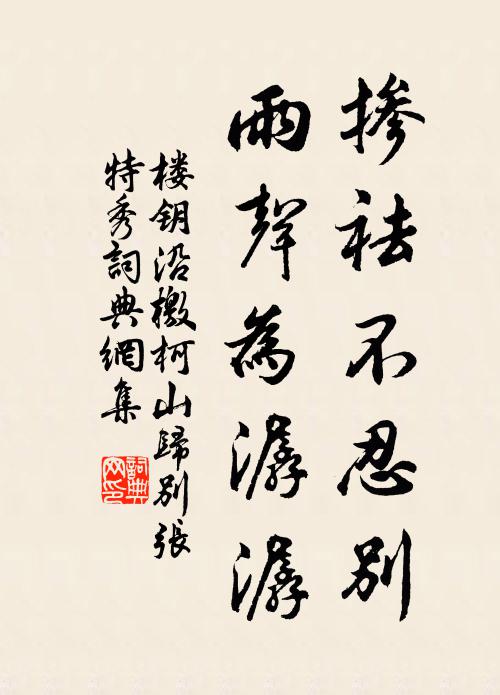 掺袪不忍别
雨聲為潺潺
楼钥沿檄柯山歸别張
特秀詞典網集
詞典网印